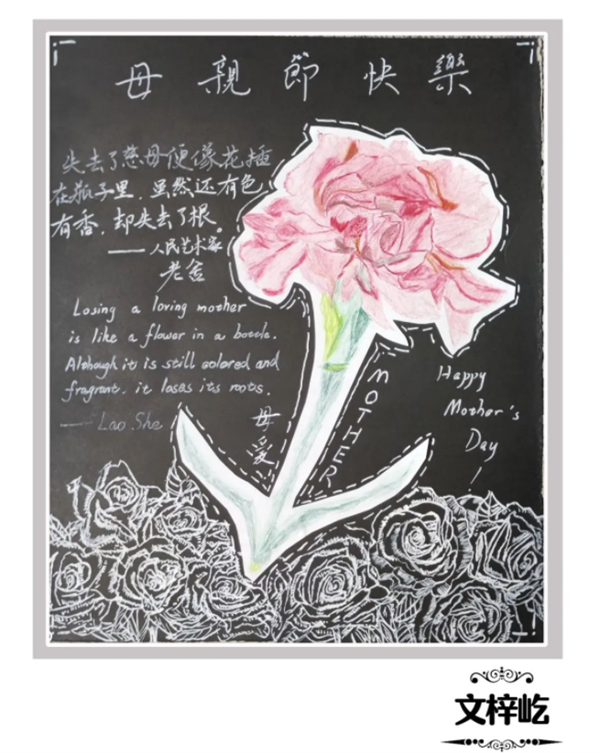 母親節快樂
失去了慈母便像花插
在瓶子里，虽然还有色
有香，却失去了根。
——人民艺术家
老舍
Losing a loving mother
is like a flower in a bottle.
Although it is still colored and
fragrant, it loses its roots.
——Lao She
母爱
MOTHER
Happy
Mother's
Day
!
文梓屹